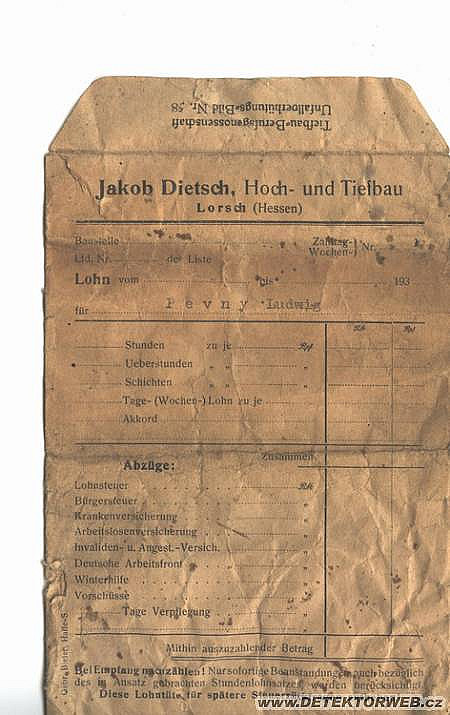 Tiefbau-Berufsgenossenschaft
Unfallverhütungs-Bild Nr. 58
Jakob Dietsch, Hoch- und Tiefbau
Lorsch (Hessen)
Baustelle Zahltag-
Wochen-) Nr.
Lfd. Nr. der Liste
Lohn vom bis 193
für Pevny Ludwig
RM Rpf
Stunden zu je Rpf
Ueberstunden " "
Schichten " "
Tage- (Wochen-) Lohn zu je
Akkord
Zusammen
Abzüge:
Lohnsteuer RM
Bürgersteuer
Krankenversicherung
Arbeitslosenversicherung
Invaliden- u. Angest.-Versich.
Deutsche Arbeitsfront
Winterhilfe
Vorschüsse
Tage Verpflegung
Mithin auszuzahlender Betrag
Bei Empfang nachzählen! Nur sofortige Beanstandungen auch bezüglich
des in Ansatz gebrachten Stundenlohnsatzes werden berücksichtigt
Diese Lohntüte für spätere
Halle-S.
WWW.DETEKTORWEB.CZ